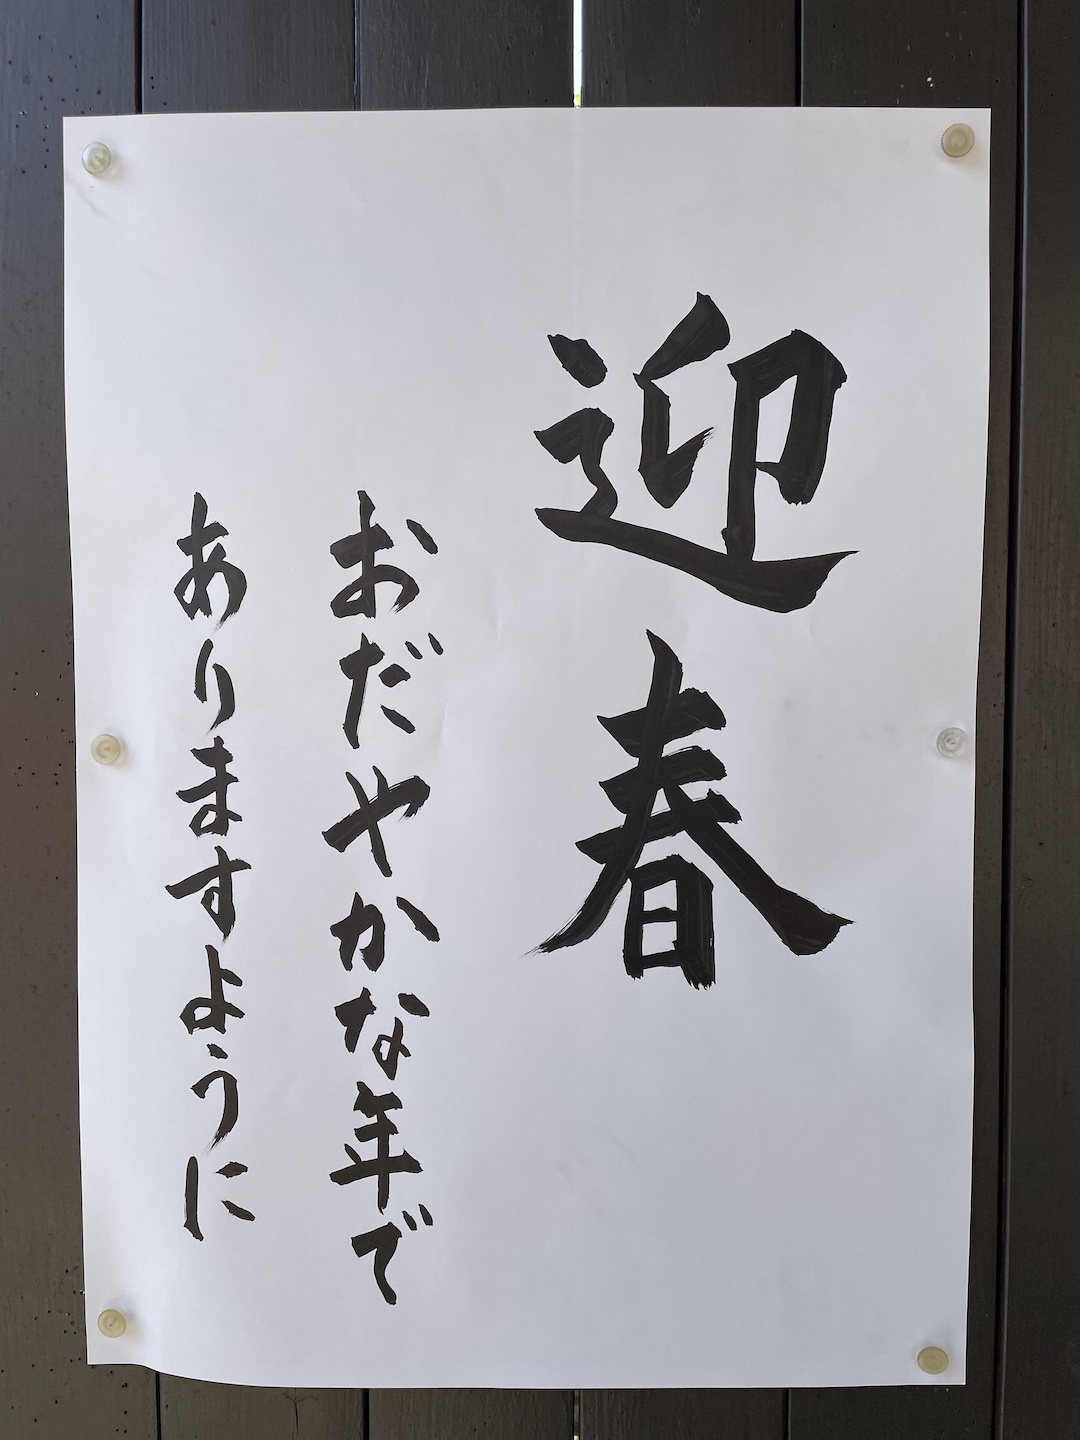 迎春
おだやかな年で
ありますように